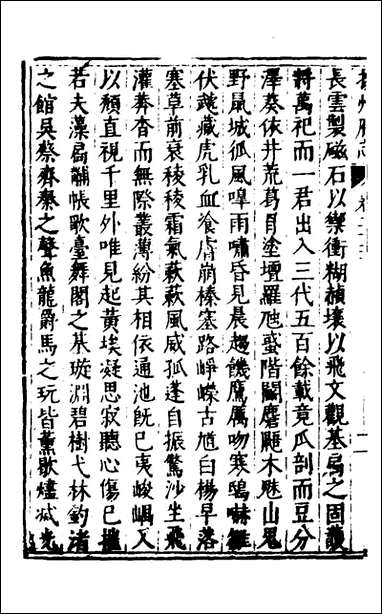 揚州府志
長雲製磁石以禦衝糊赬壤以飛文觀基扃之固護
將萬祀而一君出入三代五百餘載竟瓜剖而豆分
澤葵依井荒葛罥塗壇羅虺蜮階鬬麏鼯木魅山鬼
野鼠城狐風嘷雨嘯昏見晨趨饑鷹厲吻寒鴟嚇雛
伏虣藏虎乳血飡膚崩榛塞路崢嶸古馗白楊早落
塞草前衰稜稜霜氣蔌蔌風威孤蓬自振驚沙坐飛
灌莽杳而無際叢薄紛其相依通池既已夷峻嵎又
以頹直視千里外唯見起黃埃凝思寂聽心傷已摧
若夫藻扃黼帳歌臺舞閣之基璇淵碧樹弋林釣渚
之館吳蔡齊秦之聲魚龍爵馬之玩皆薰歇燼滅光